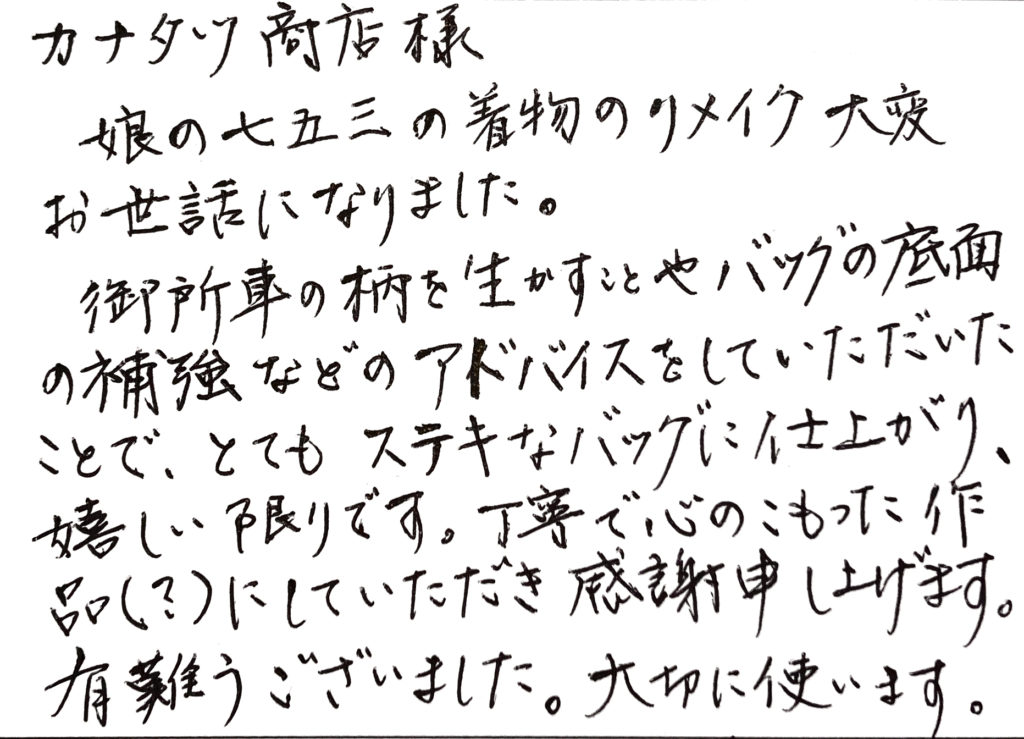 カナタツ商店様
娘の七五三の着物のリメイク大変
お世話になりました。
御所車の柄を生かすことやバッグの底面
の補強などのアドバイスをしていただいた
ことで、とてもステキなバッグに仕上がり、
嬉しい限りです。丁寧で心のこもった作
品(?)にしていただき感謝申し上げます。
有難うございました。大切に使います。